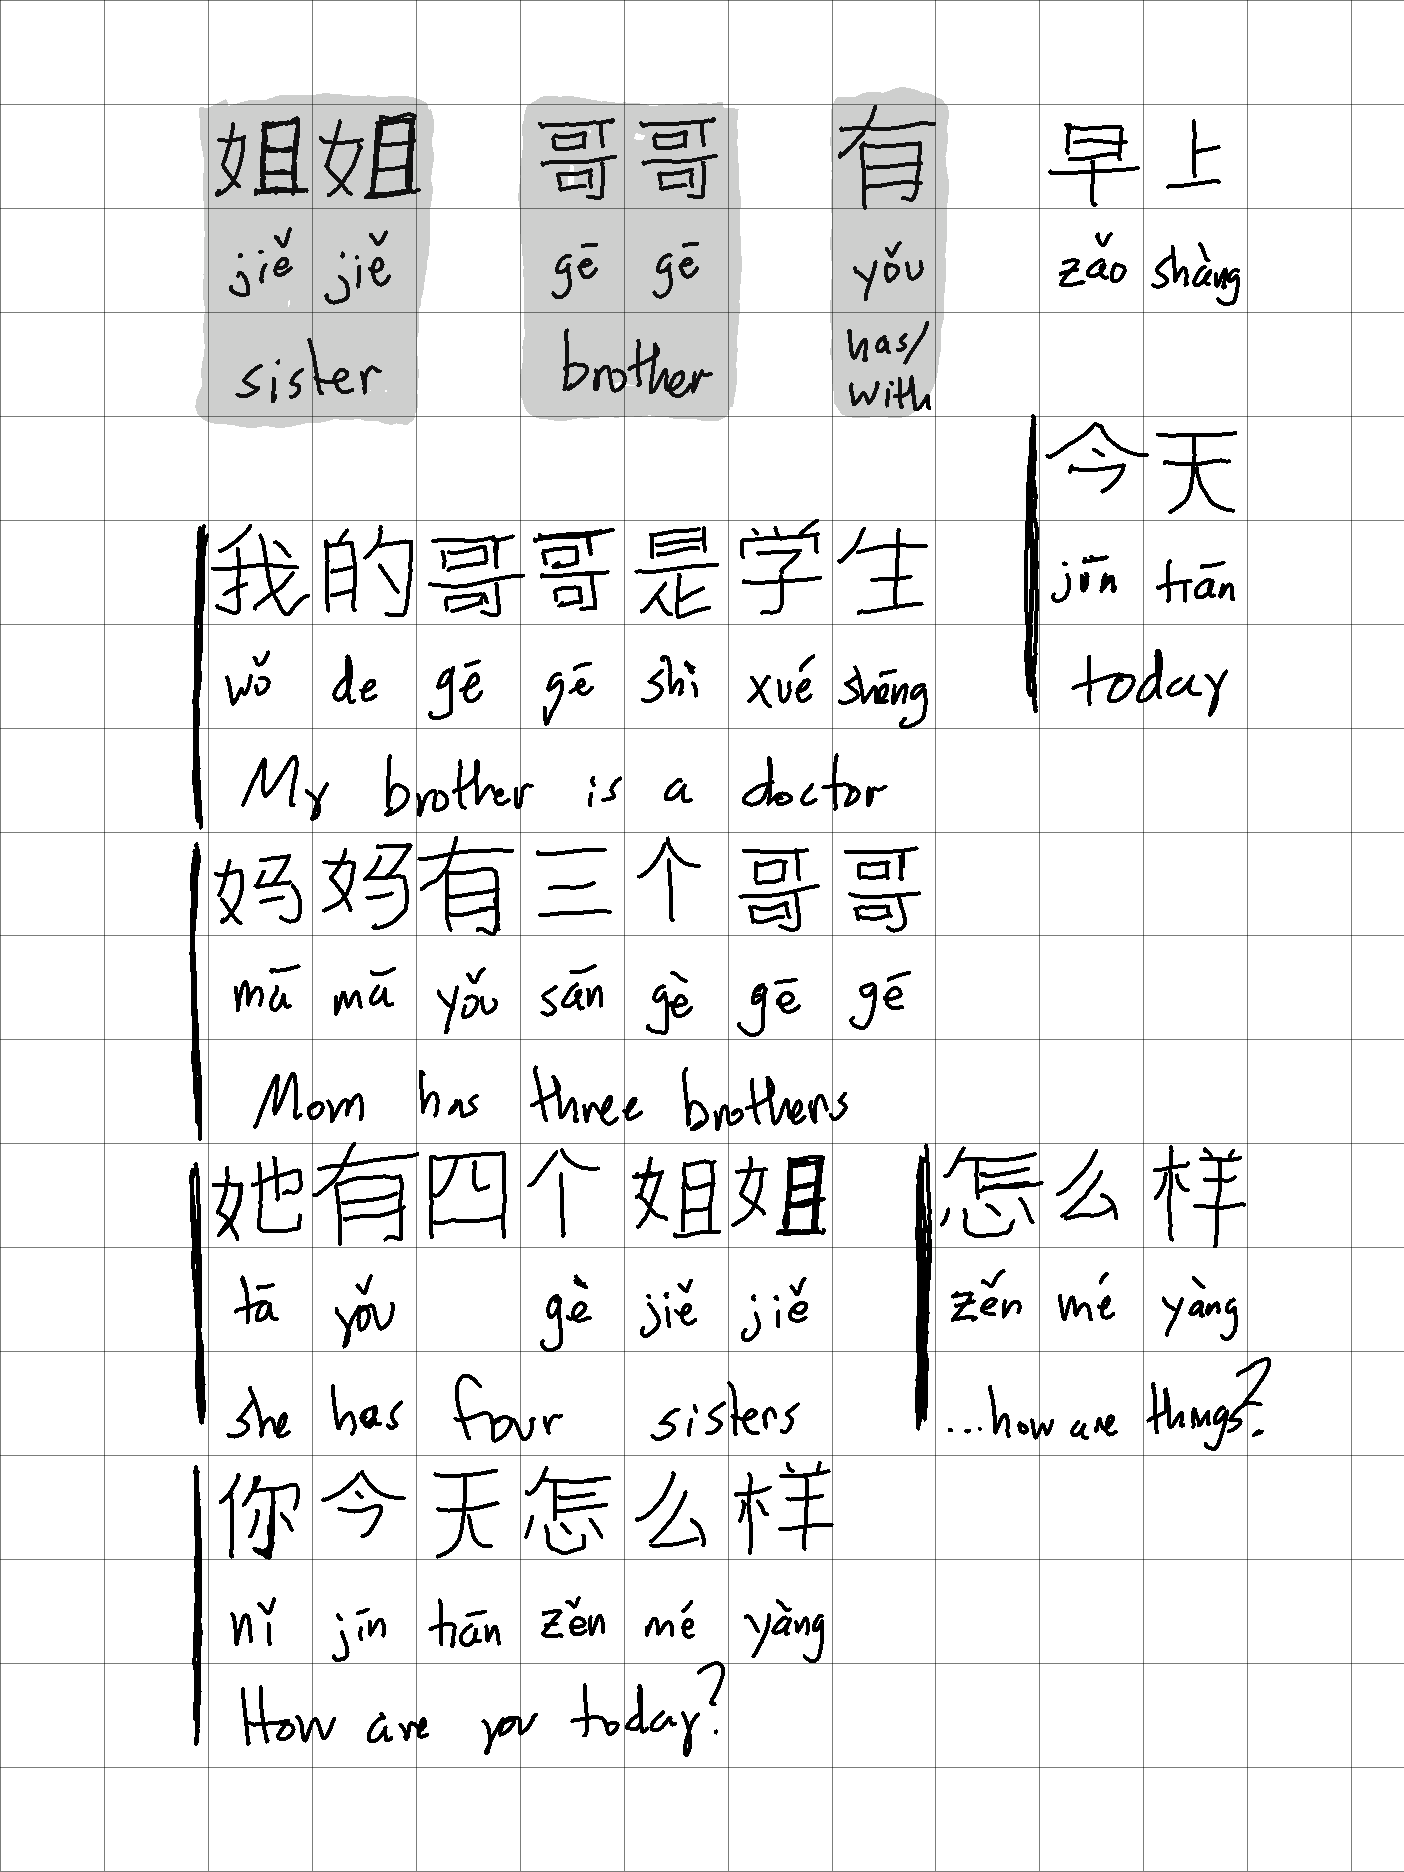 姐姐 哥哥 有 早上
jiě jiě gē gē yǒu zǎo shàng
sister brother has/
with
今天
我的哥哥是学生 jīn tiān
wǒ de gē gē shì xué shēng today
My brother is a doctor
妈妈有三个哥哥
mā mā yǒu sān gè gē gē
Mom has three brothers
她有四个姐姐 怎么样
tā yǒu gè jiě jiě zěn mé yàng
she has four sisters ...how are things?
你今天怎么样
nǐ jīn tiān zěn mé yàng
How are you today?